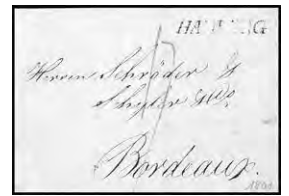 HAMBURG
Herren Schröder &
Schyler & Co.
Bordeaux.